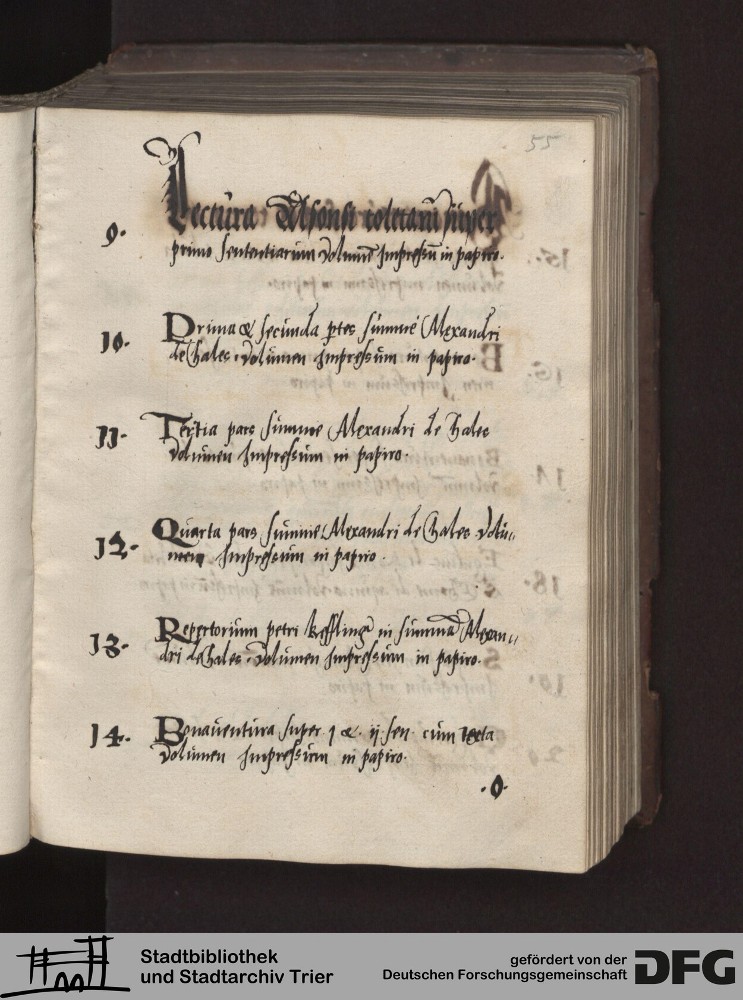 55
9. Lectura Alfonsi toletani super
primo sententiarum volumen impressum in papiro.
10. Prima & secunda partes summe Alexandri
de hales. volumen impressum in papiro.
11. Tertia pars summe Alexandri de hales
volumen impressum in papiro.
12. Quarta pars summe Alexandri de hales volu„
men impressum in papiro.
13. Repertorium petri in summa Alexan„
dri de hales. volumen impressum in papiro.
14. Bonaventura super 1 & ij sen. cum texta
volumen impressum in papiro.
.O.
Stadtbibliothek
und Stadtarchiv Trier
gefördert von der
Deutschen Forschungsgemeinschaft
DFG